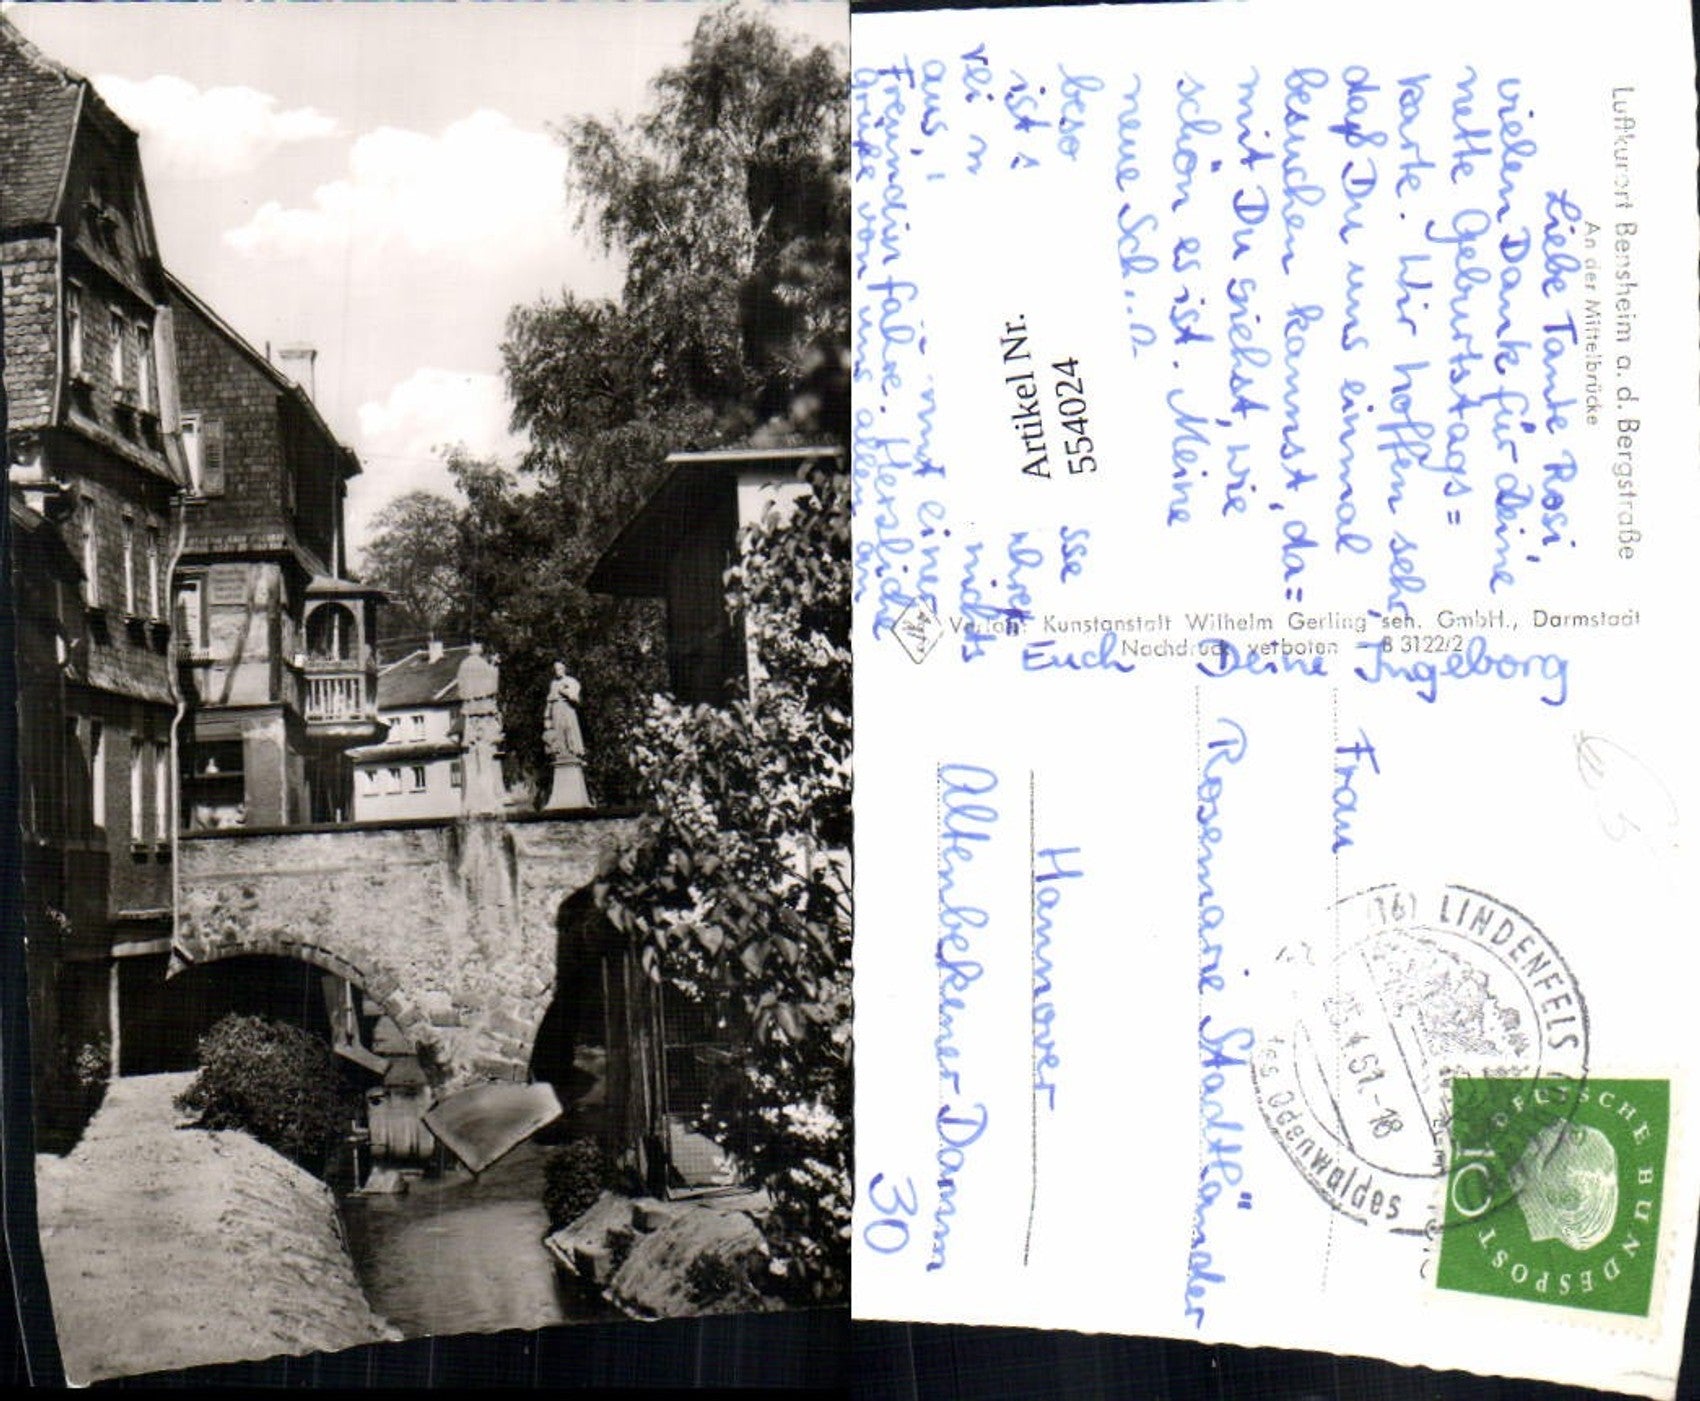 Luftkurort Bensheim a. d. Bergstraße
An der Mittelbrücke
Liebe Tante Rosi,
vielen Dank für Deine
nette Geburtstags=
karte. Wir hoffen sehr,
daß Du uns einmal
besuchen kannst, da=
mit Du siehst, wie
schön es ist. Meine
neue Sch
beso sse
ist
nichts
aus, mit einer
Freundin fahre. Herzliche
Grüße von uns allen an
Euch Deine Ingeborg
Artikel Nr.
554024
Verlag: Kunstanstalt Wilhelm Gerling seh. GmbH., Darmstadt
Nachdruck verboten B 3122/2
Frau
Rosemarie Stadtländer
Hannover
Altenbekener Damm
30
(16) LINDENFELS
.4.61.-18
des Odenwaldes
DEUTSCHE BUNDESPOST
10